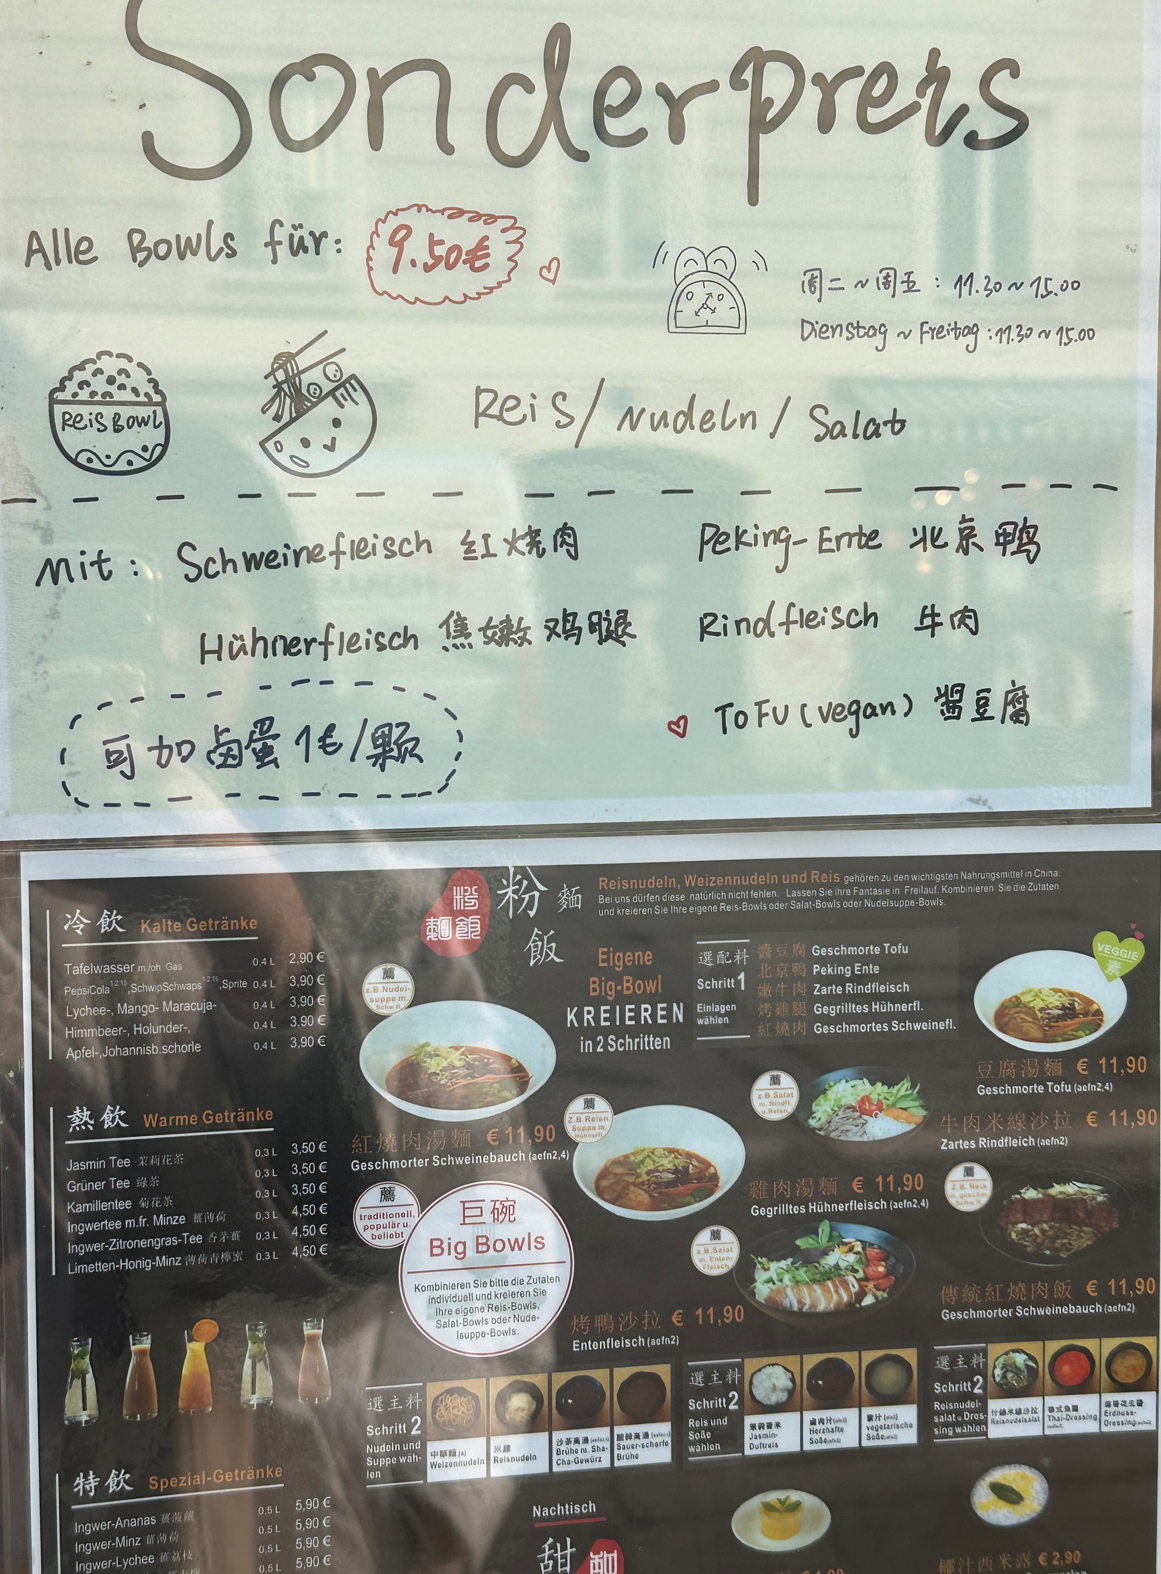 Sonderpreis
Alle Bowls für: 9.50€
周二~周五：11.30~15.00
Dienstag ~ Freitag:11.30~15.00
Reis Bowl
Reis/Nudeln/Salat
Mit: Schweinefleisch 红烧肉
Peking-Ente 北京鸭
Hühnerfleisch 焦嫩鸡腿
Rindfleisch 牛肉
Tofu (vegan) 酱豆腐
可加卤蛋1€/颗
冷飲 Kalte Getränke
Tafelwasser m./oh. Gas 0,4 L 2,90 €
PepsiCola,SchwipSchwaps,Sprite 0,4 L 3,90 €
Lychee-, Mango- Maracuja- 0,4 L 3,90 €
Himmbeer-, Holunder-, 0,4 L 3,90 €
Apfel-,Johannisb.schorle 0,4 L 3,90 €
熱飲 Warme Getränke
Jasmin Tee 茉莉花茶 0,3 L 3,50 €
Grüner Tee 綠茶 0,3 L 3,50 €
Kamillentee 菊花茶 0,3 L 3,50 €
Ingwertee m.fr. Minze 薑薄荷 0,3 L 4,50 €
Ingwer-Zitronengras-Tee 香茅薑 0,3 L 4,50 €
Limetten-Honig-Minz 薄荷青檸蜜 0,3 L 4,50 €
特飲 Spezial-Getränke
Ingwer-Ananas 薑菠蘿 0,5 L 5,90 €
Ingwer-Minz 薑薄荷 0,5 L 5,90 €
Ingwer-Lychee 薑荔枝 0,5 L 5,90 €
粉麵飯
粉麵
飯
Reisnudeln, Weizennudeln und Reis gehören zu den wichtigsten Nahrungsmittel in China.
Bei uns dürfen diese natürlich nicht fehlen. Lassen Sie ihre Fantasie in Freilauf. Kombinieren Sie die Zutaten
und kreieren Sie Ihre eigene Reis-Bowls oder Salat-Bowls oder Nudelsuppe-Bowls.
Eigene
Big-Bowl
KREIEREN
in 2 Schritten
選配料
Schritt 1
Einlagen
wählen
醬豆腐 Geschmorte Tofu
北京鴨 Peking Ente
嫩牛肉 Zarte Rindfleisch
烤雞腿 Gegrilltes Hühnerfl.
紅燒肉 Geschmortes Schweinefl.
VEGGIE
素
薦
z.B.Nudel-
suppe m.
Schw.fl.
紅燒肉湯麵 € 11,90
Geschmorter Schweinebauch (aefn2,4)
薦
Z.B.Reisn.
Suppe m.
Hühnerfl.
雞肉湯麵 € 11,90
Gegrilltes Hühnerfleisch (aefn2,4)
豆腐湯麵 € 11,90
Geschmorte Tofu (aefn2,4)
薦
z.B.Salat
m. Rindfl.
u.Reisn.
牛肉米線沙拉 € 11,90
Zartes Rindfleich (aefn2)
薦
Z.B. Reis
m. geschm.
Schw.fl.
傳統紅燒肉飯 € 11,90
Geschmorter Schweinebauch (aefn2)
薦
z.B.Salat
m. Enten-
Fleisch
烤鴨沙拉 € 11,90
Entenfleisch (aefn2)
薦
traditionell,
populär u.
beliebt
巨碗
Big Bowls
Kombinieren Sie bitte die Zutaten
individuell und kreieren Sie
Ihre eigene Reis-Bowls,
Salat-Bowls oder Nude-
lsuppe-Bowls.
選主料
Schritt 2
Nudeln und
Suppe wäh-
len
中華麵 (a)
Weizennudeln
米線
Reisnudeln
沙茶高湯
Brühe m. Sha-
Cha-Gewürz
酸辣高湯
Sauer-scharfe
Brühe
選主料
Schritt 2
Reis und
Soße
wählen
茉莉香米
Jasmin-
Duftreis
滷肉汁
Herzhafte
Soße
素汁
vegetarische
Soße
選主料
Schritt 2
Reisnudel-
salat u. Dres-
sing wählen
什錦米線沙拉
Reisnudelsalat
泰式魚露
Thai-Dressing
Erdnuss-
Dressing
Nachtisch
甜
椰汁西米露 € 2,90